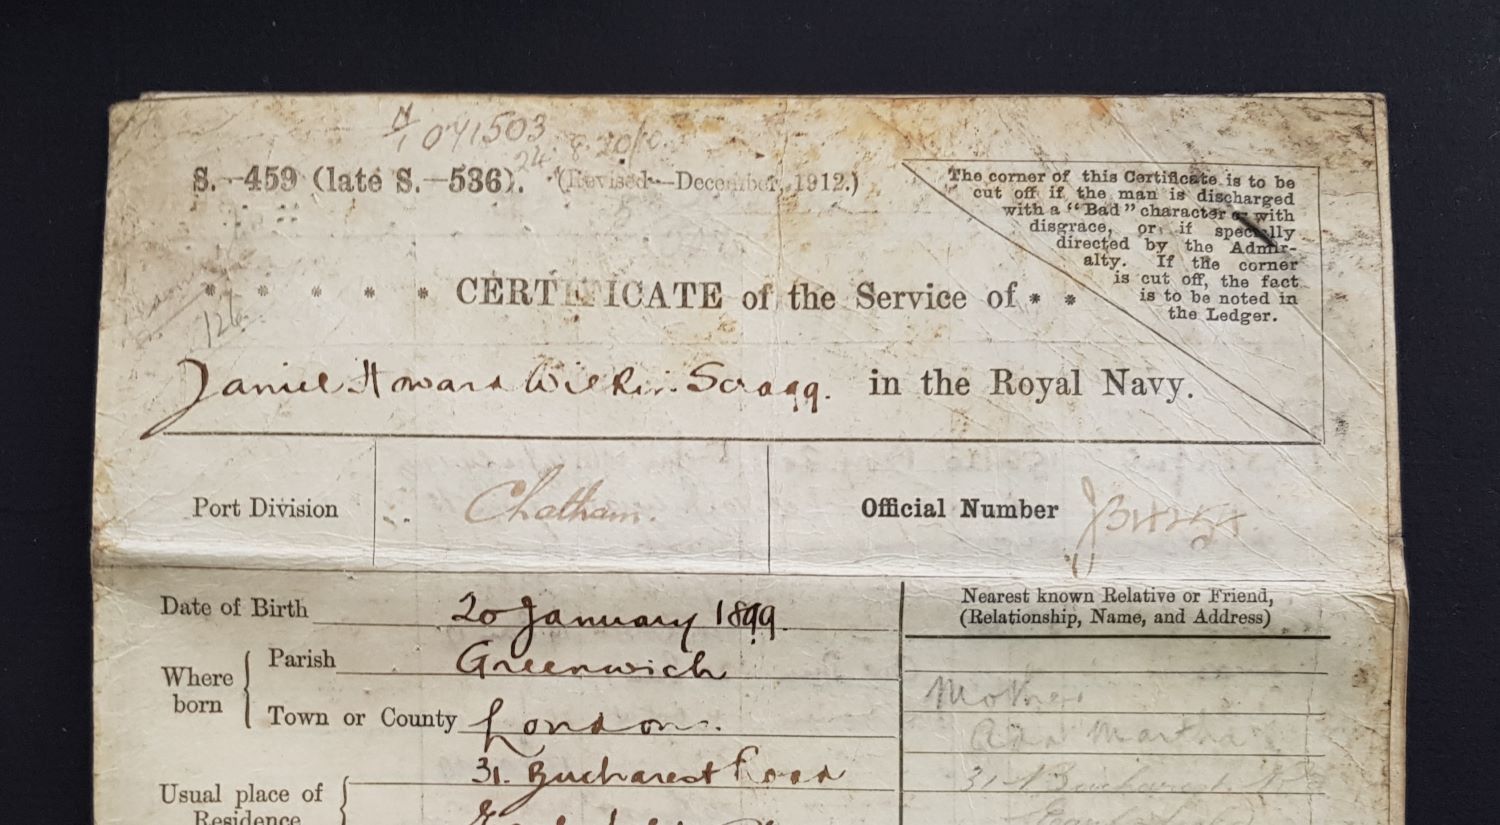 071503
S.—459 (late S.—536). (Revised—December, 1912.)
The corner of this Certificate is to be
cut off if the man is discharged
with a "Bad" character or with
disgrace, or if specially
directed by the Admir-
alty. If the corner
is cut off, the fact
is to be noted in
the Ledger.
CERTIFICATE of the Service of
126
Daniel Howard Wilkin Scragg. in the Royal Navy.
Port Division Chatham. Official Number
Date of Birth 20 January 1899.
Nearest known Relative or Friend,
(Relationship, Name, and Address)
Where born
Parish Greenwich
Town or County London.
Mother
Martha
Usual place of
Residence
31. Bucharest Road
31 Bucharest Rd